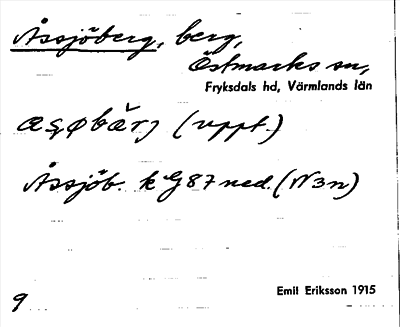 Åssjöberg, berg,
Östmarks sn,
Fryksdals hd, Värmlands län
æșøbärj (uppt.)
Åssjöb. k G87 ned. (N3n)
9
Emil Eriksson 1915